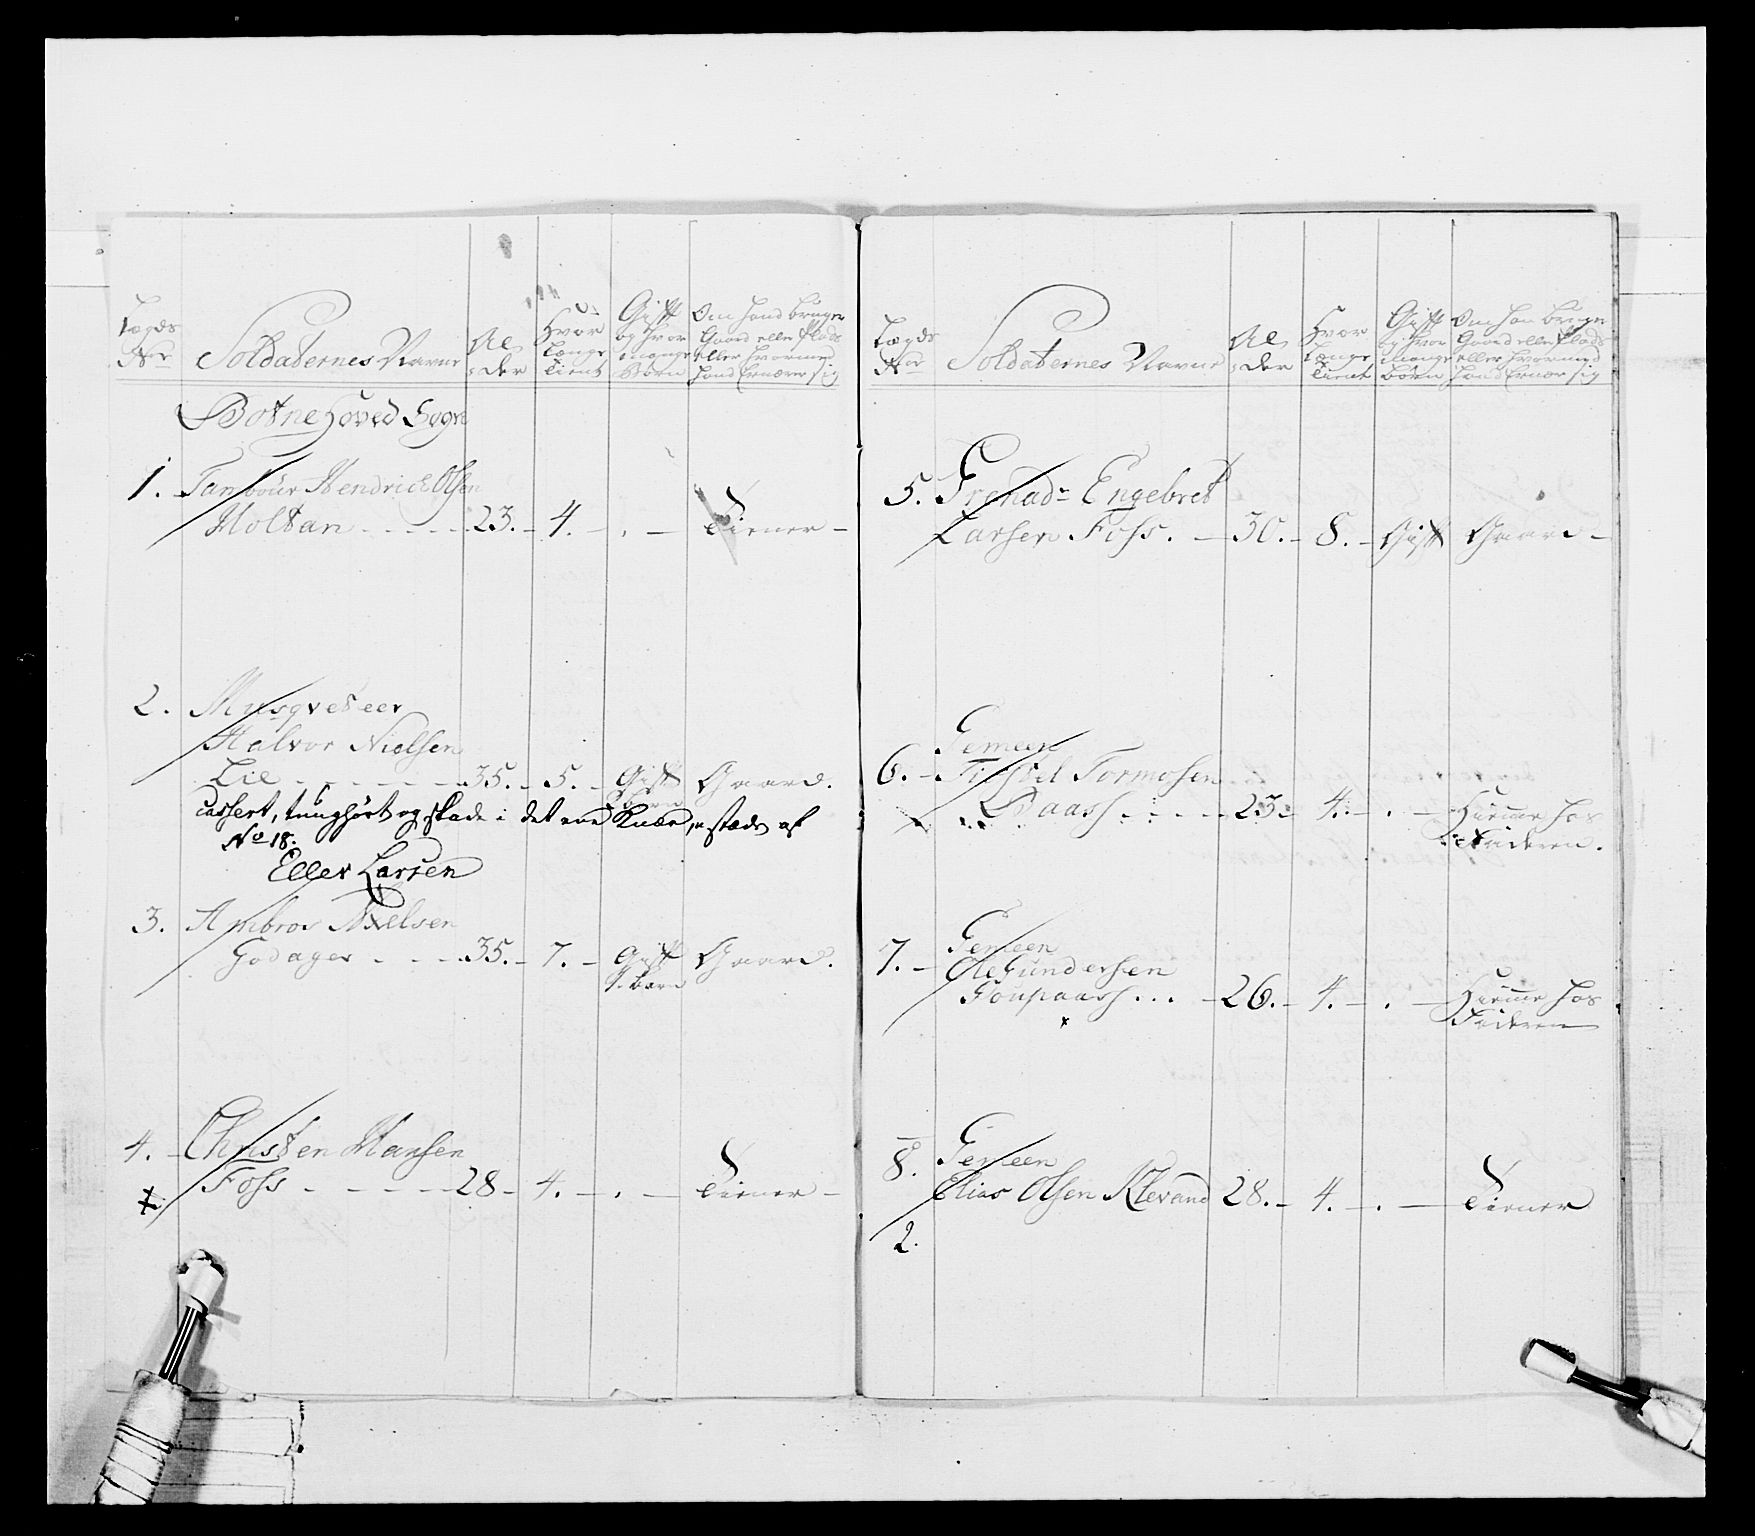 Lægds
Nr
Soldaternes Navne
Al
der
Hvor
Længe
Tient
Gift
og Hvor
mange
Børn
Om hand bruger
Gaard eller Plads
eller hvormed
hand Ernærer sig
Botne Hoved Sogn
1. Tambour Hendrich Olsen
Holtan - - - - 23. - 4. - . - Tiener -
2. Musqveteer
Halvor Nielsen
Lie - - - - - 35. - 5. - Gift Gaard.
Børn
Cassert, tunghørt og skade i det ene Knæe, i stæden af
No 18.
Eller Larsen
3. Ambros Nielsen
Godager - - - 35. - 7. - Gift Gaard.
1. barn
4. - Christen Hansen
Foss - - - - - 28 - 4. - . - Tiener -
Lægds
Nr
Soldaternes Navne
Al
der
Hvor
Længe
Tient
Gift
og Hvor
mange
børn
Om han bruger
Gaard eller Plads
eller hvormed
hand Ernær sig
5. Grenadr Engebret
Larsen Foss. - 30. - 8. - Gift Gaard -
Gemeen
6. - Tormosen
Baass - - - - 23 - 4. - . - Hiemme hos
Faderen.
Gemeen
7. - Ole Gundersen
Foupaass... - 26. - 4. - . - Hiemme hos
Faderen
8. Gemeen
Elias Olsen Klevand 28. - 4. - . - Tiener
2.